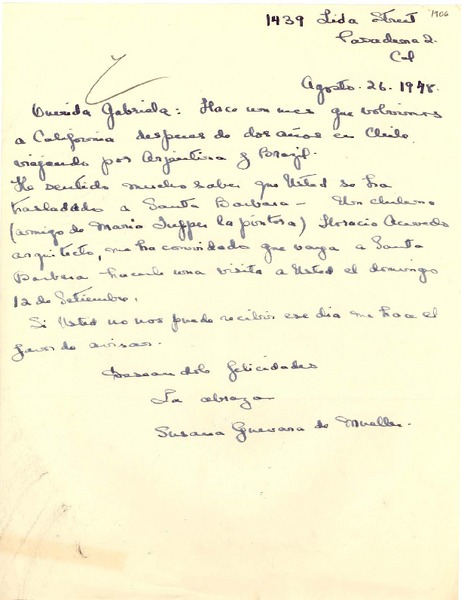 1906
1439 Lida Street
Pasadena 2.
Cal
Agosto. 26. 1948.
Querida Gabriela: Hace un mes que volvimos
a California despues de dos años en Chile
viajando por Argentina y Brazil.
He sentido mucho saber que Usted se ha
trasladado a Santa Barbara – Un chileno
(amigo de Maria Tupper la pintora) Horacio Acevedo
arquitecto, me ha convidado que vaya a Santa
Barbara – hacerle una visita a Usted el domingo
12 de Setiembre.
Si Usted no nos puede recibir ese dia me hace el
favor de avisar.
Deseandole felicidades
La abraza
Susana Guevara de Mueller.